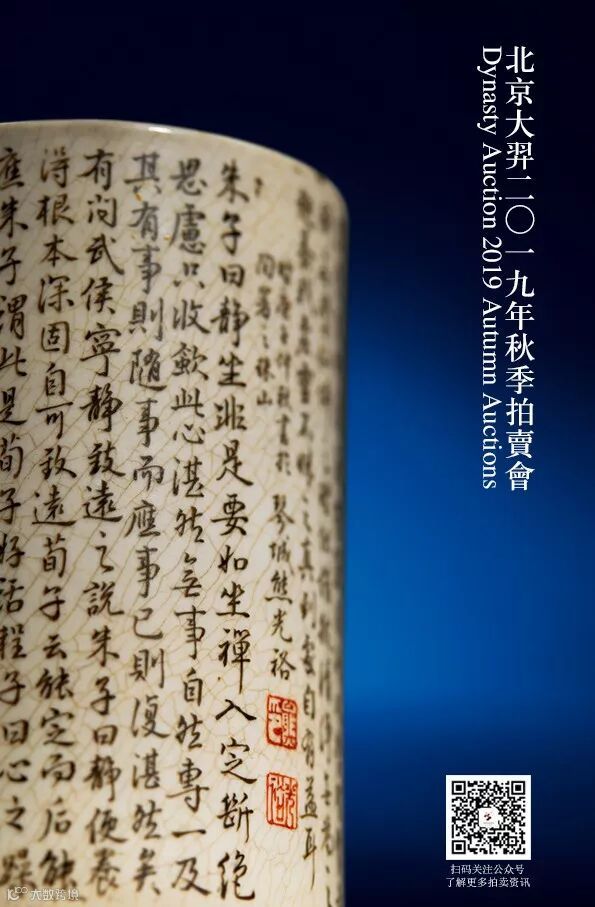 北京大羿二〇一九年秋季拍賣會
Dynasty Auction 2019 Autumn Auctions
朱子曰靜坐非是要如坐禪入定斷絕
思慮只收歛此心湛然無事自然專一及
其有事則隨事而應事已則復湛然矣
有问武侯寧靜致遠之說朱子曰靜便養
得根本深固自可致遠荀子云能定而后能
應朱子謂此是荀子好話程子曰心之躁
琴城熊光裕
扫码关注公众号
了解更多拍卖资讯
大数跨境